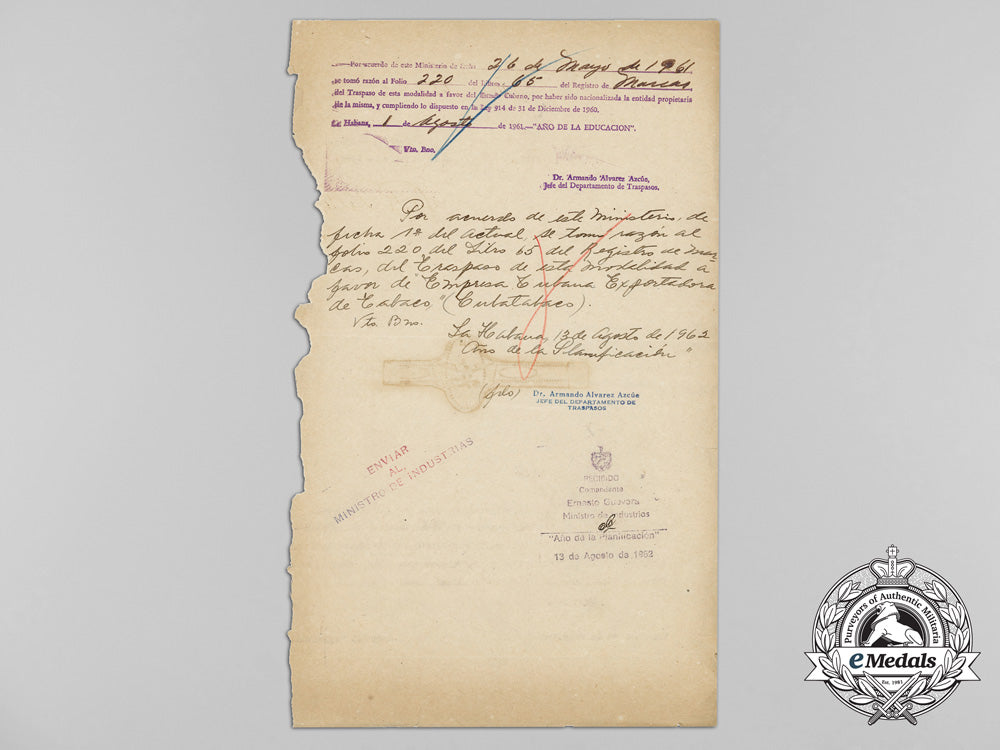 Por acuerdo de este Ministerio de fecha 26 de Mayo de 1961
se tomó razón al Folio 220 del Libro 65 del Registro de Marcas
del Traspaso de esta modalidad a favor del Estado Cubano, por haber sido nacionalizada la entidad propietaria
de la misma, y cumpliendo lo dispuesto en la Ley 914 de 31 de Diciembre de 1960.
La Habana, 1 de Agosto de 1961.—"AÑO DE LA EDUCACION".
Vto. Bno.
Dr. Armando Alvarez Azcúe,
Jefe del Departamento de Traspasos.
Por acuerdo de este Ministerio de
fecha 1º del actual, se tomo razón al
folio 220 del Libro 65 del Registro de Mar-
cas, del Traspaso de esta modalidad a
favor de "Empresa Cubana Exportadora
de Tabaco," (Cubatabaco).
Vto. Bno.
La Habana, 13 de Agosto de 1962
"Año de la Planificación"
Dr. Armando Alvarez Azcúe
JEFE DEL DEPARTAMENTO DE
TRASPASOS
ENVIAR
AL
MINISTRO DE INDUSTRIAS
RECIBIDO
Comandante
Ernesto Guevara
Ministro de Industrias
"Año de la Planificación"
13 de Agosto de 1962
Purveyors of Authentic Militaria
eMedals
Est. 1981